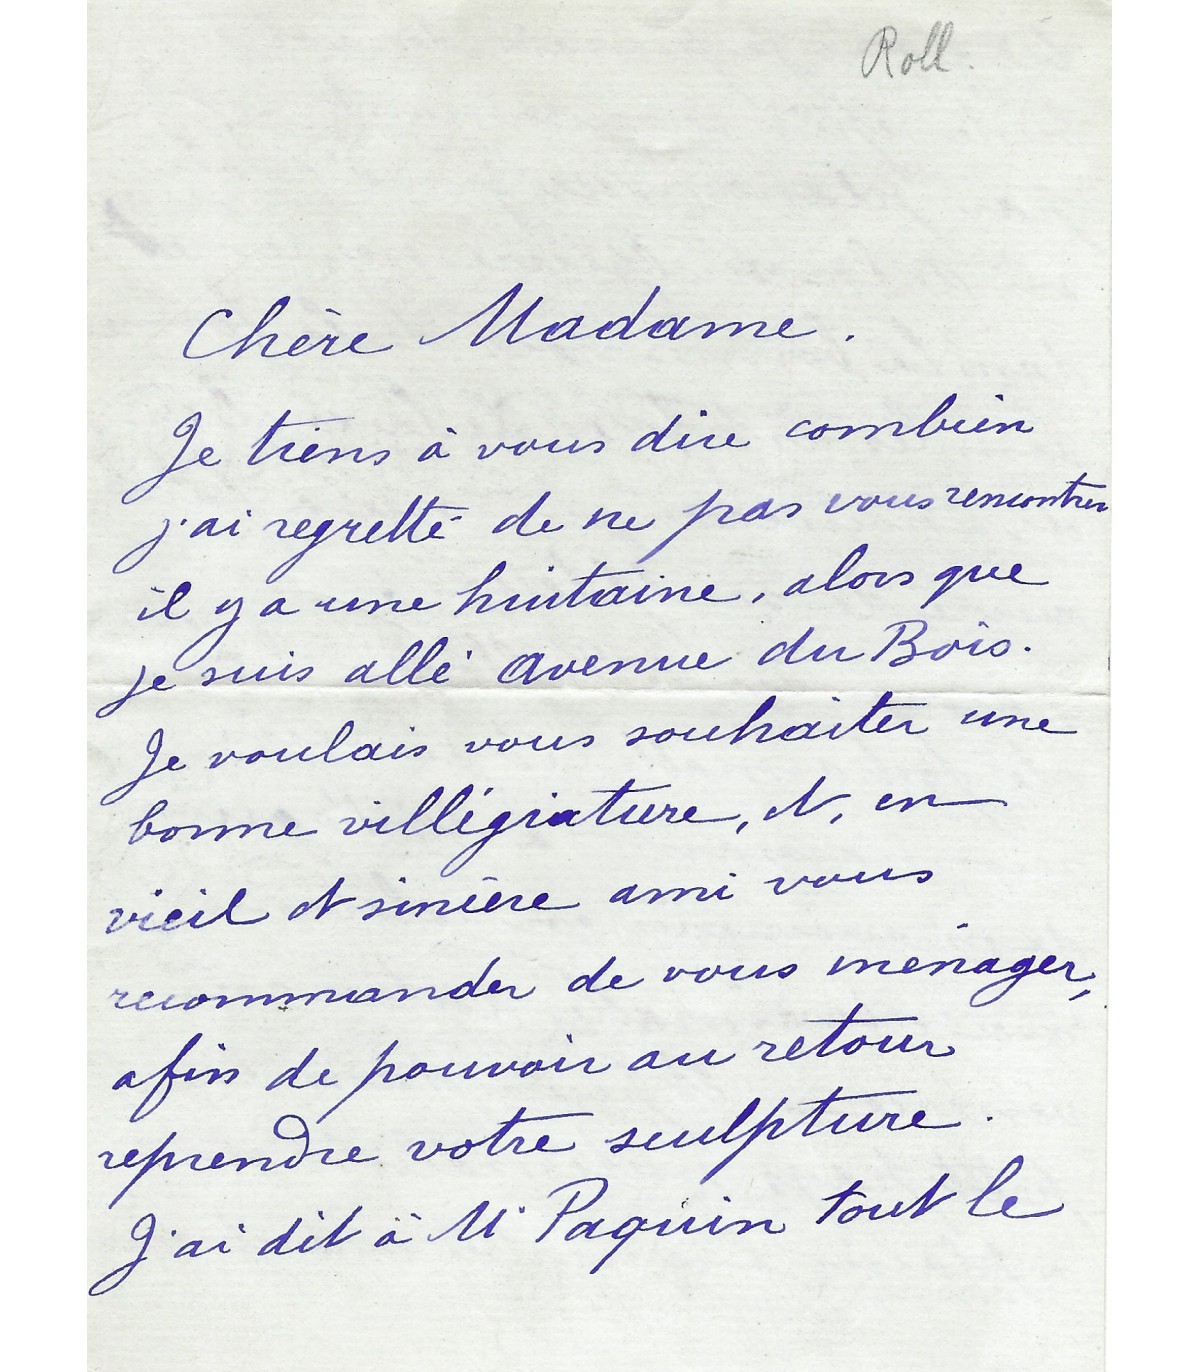 Roll.
Chère Madame.
Je tiens à vous dire combien
j'ai regretté de ne pas vous rencontrer
il y a une huitaine, alors que
je suis allé avenue du Bois.
Je voulais vous souhaiter une
bonne villégiature, et, en
vieil et sincère ami vous
recommander de vous ménager,
afin de pouvoir au retour
reprendre votre sculpture.
J'ai dit à Mr Paquin tout le